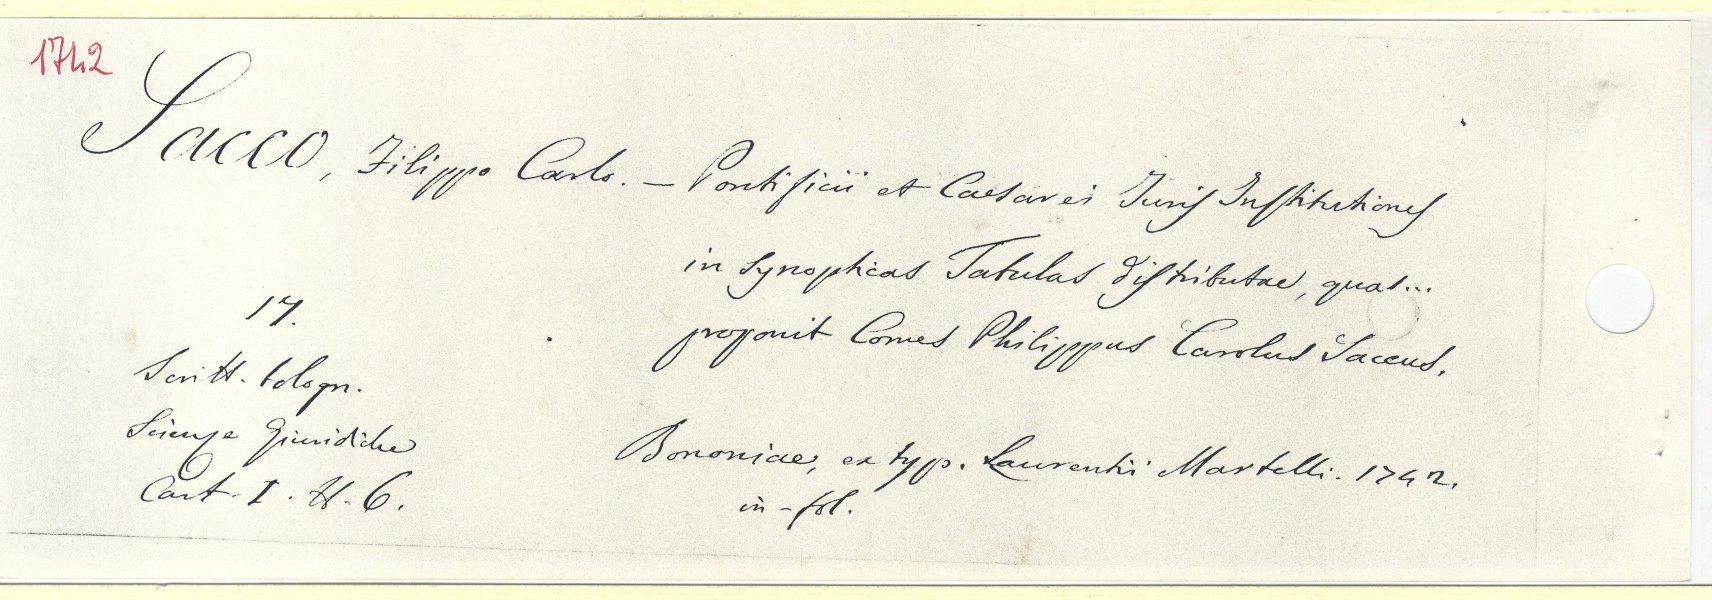 1742
Sacco, Filippo Carlo. — Pontificii et Caesarei Juris Institutiones
in Synopticas Tabulas distributae, quas...
proponit Comes Philippus Carolus Saccus.
17.
Scritt. bologn.
Scienze Giuridiche
Cart. I. H. 6.
Bononiae, ex typ. Laurentii Martelli. 1742.
in-fol.